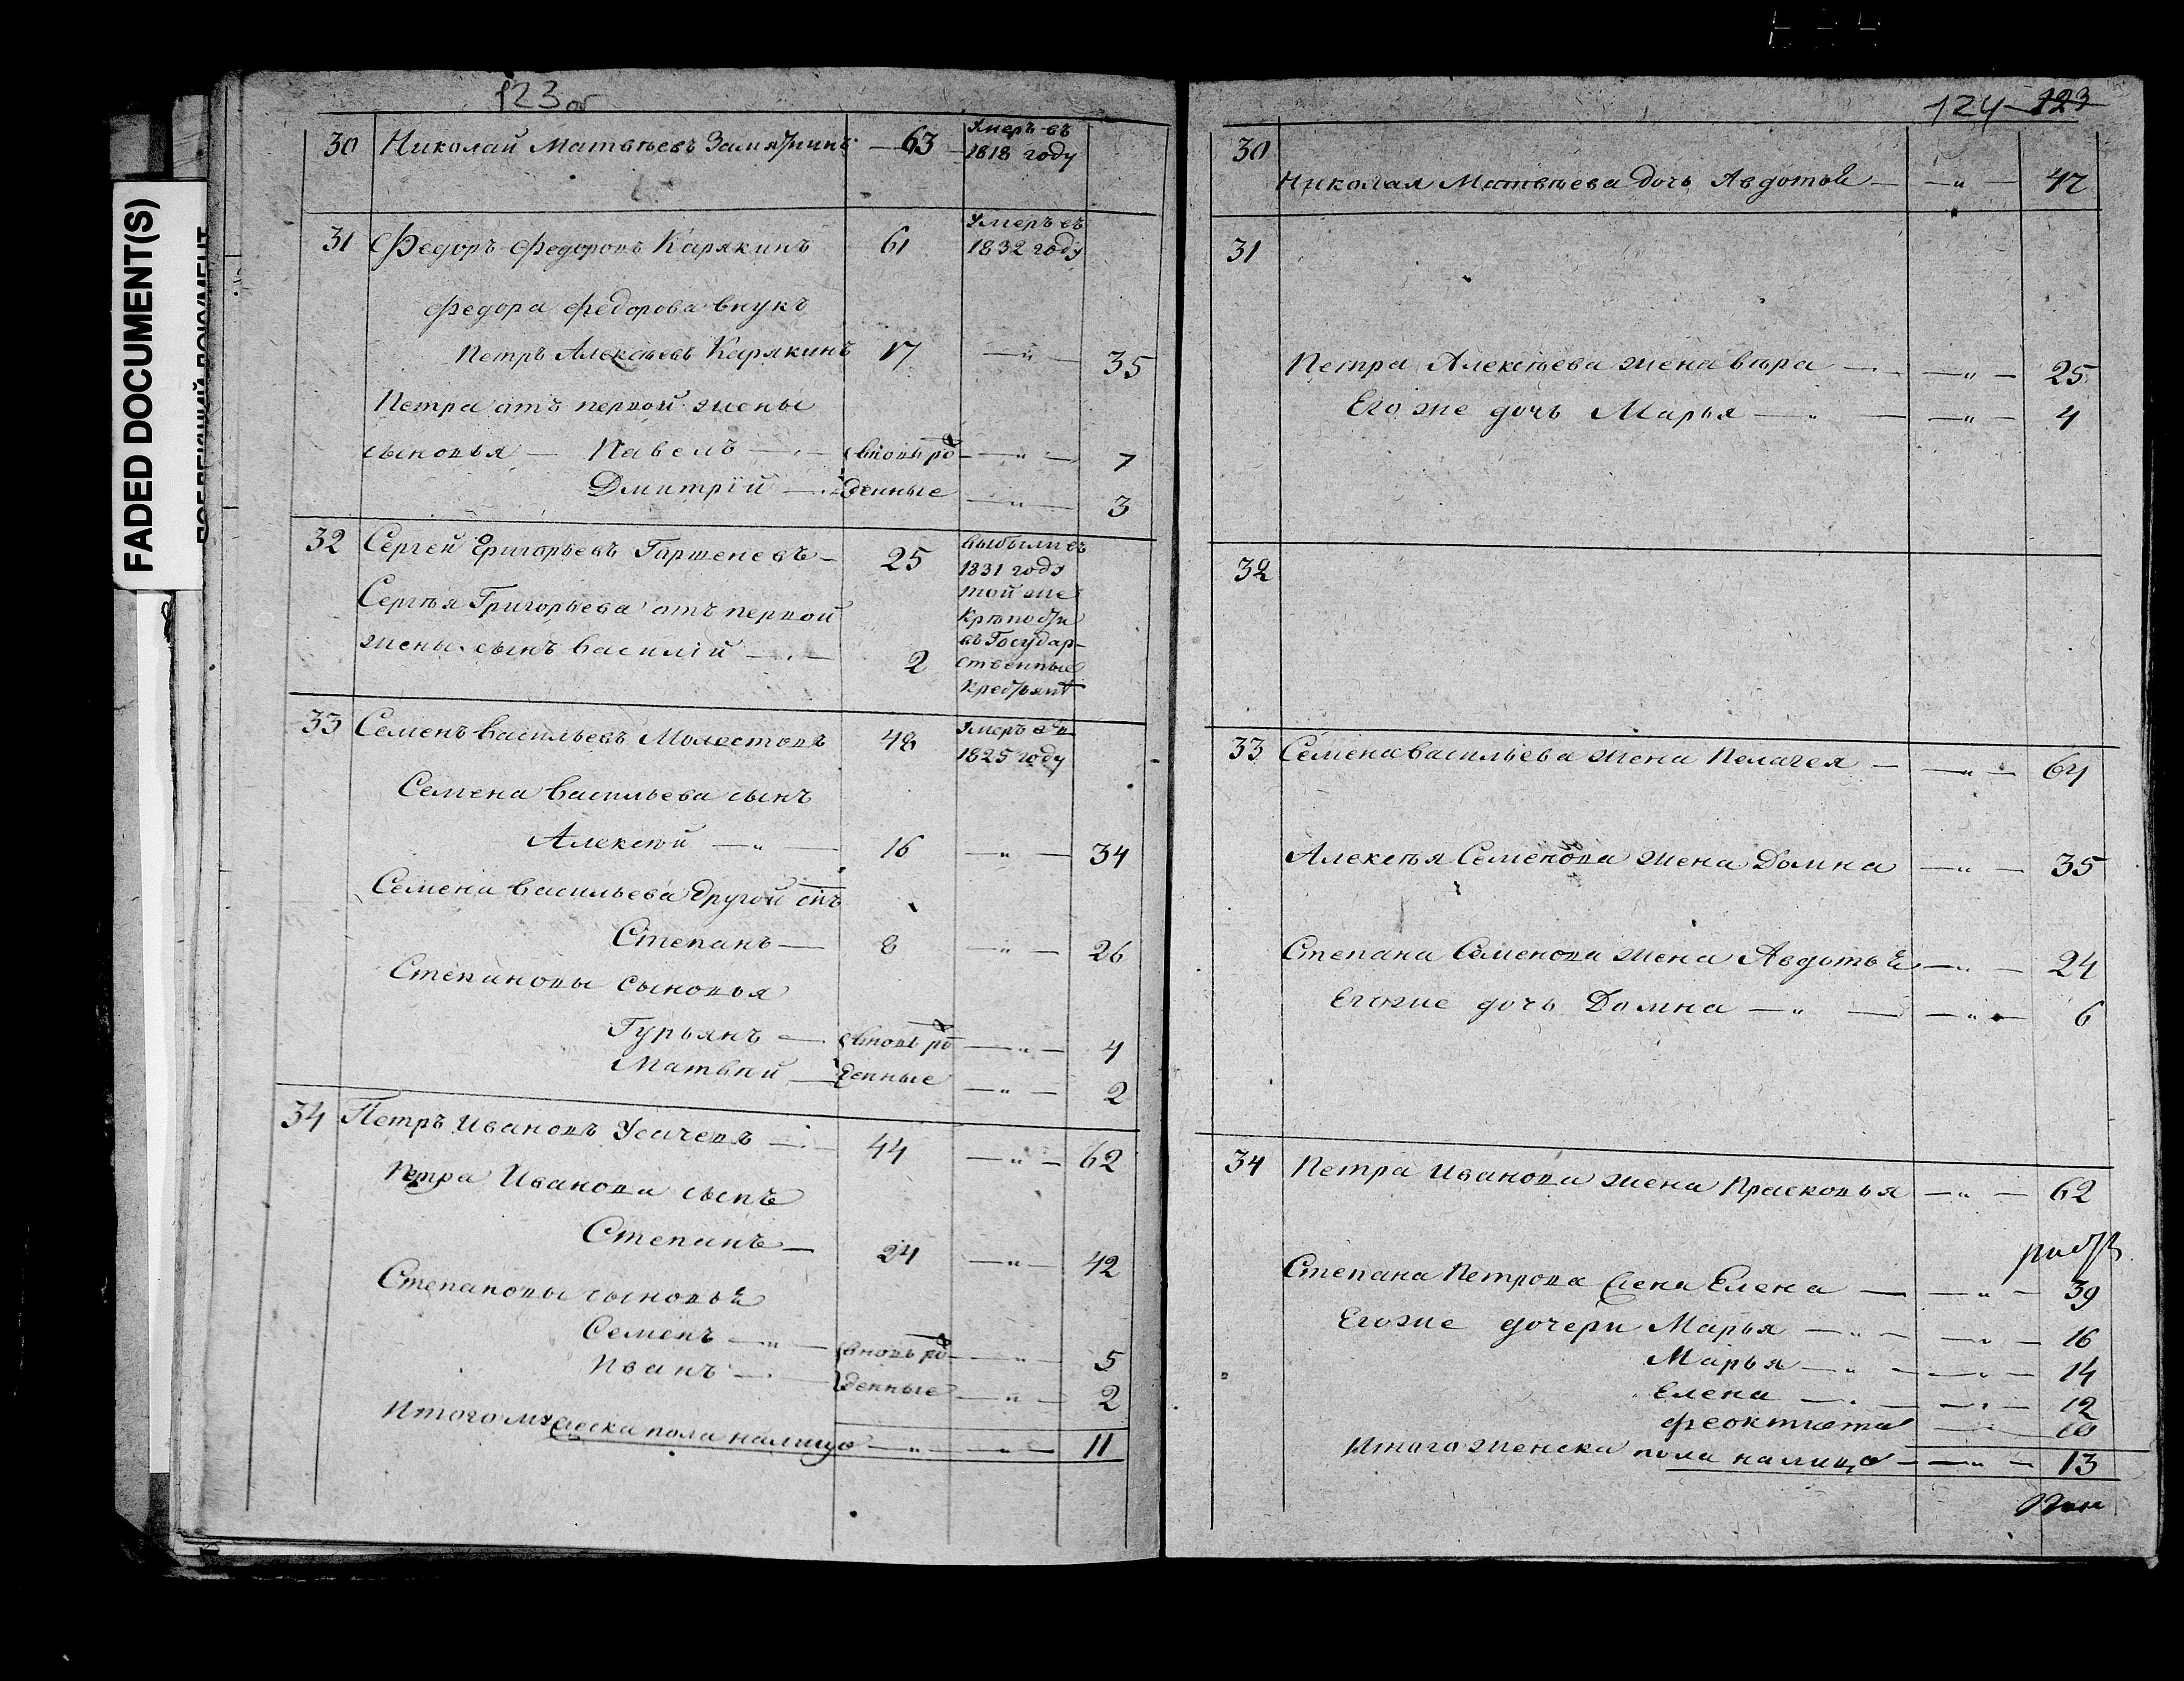 FADED DOCUMENT(S)
123 об
30 Николай Матвѣевъ — 63 Умеръ въ
1818 году
31 Федоръ Федоровъ Карякинъ 61 Умеръ въ
1832 году
Федора Федорова внукъ
Петръ Алексѣевъ Карякинъ 17 — „ — 35
Петра отъ первой жены
сыновья — Павелъ — вновь ро — „ — 7
Дмитрій — жденные — „ — 3
32 Сергей Григорьевъ Гаршеневъ — 25 выбыли въ
1831 году
той же
Сергѣя Григорьева отъ первой
жены сынъ Василій — 2
въ Государ-
ственные
Крестьяне
33 Семенъ Васильевъ Молостовъ 48 Умеръ въ
1825 году
Семена Васильева сынъ
Алексѣй — „ — 16 — „ — 34
Семена Васильева другой снъ
Степанъ — 8 — „ — 26
Степановы сыновья
Гурьянъ — вновь ро — „ — 4
Матвѣй — жденные — „ — 2
34 Петръ Ивановъ Усачевъ — 44 — „ — 62
Петра Иванова сынъ
Степанъ — 24 — „ — 42
Степановы сыновья
Семенъ — „ — вновь ро — „ — 5
Иванъ — жденные — „ — 2
Итого мужеска пола налицо — „ — „ — 11
124 123
30
Николая Матвѣева дочь Авдотья — — „ — 47
31
Петра Алексѣева жена Вѣра — — „ — 25
Его же дочь Марья — „ — — „ — 4
32
33 Семена Васильева жена Пелагея — — „ — 64
Алексѣя Семенова жена Домна — „ — 35
Степана Семенова жена Авдотья — „ — 24
Егоже дочь Домна — „ — — „ — 6
34 Петра Иванова жена Прасковья — „ — 62
Степана Петрова жена Елена — — „ — 39
Егоже дочери Марья — „ — — „ — 16
Марья — „ — — „ — 14
Елена — — „ — 12
Феоктиста — 10
Итого женска пола налицо — — „ — 13